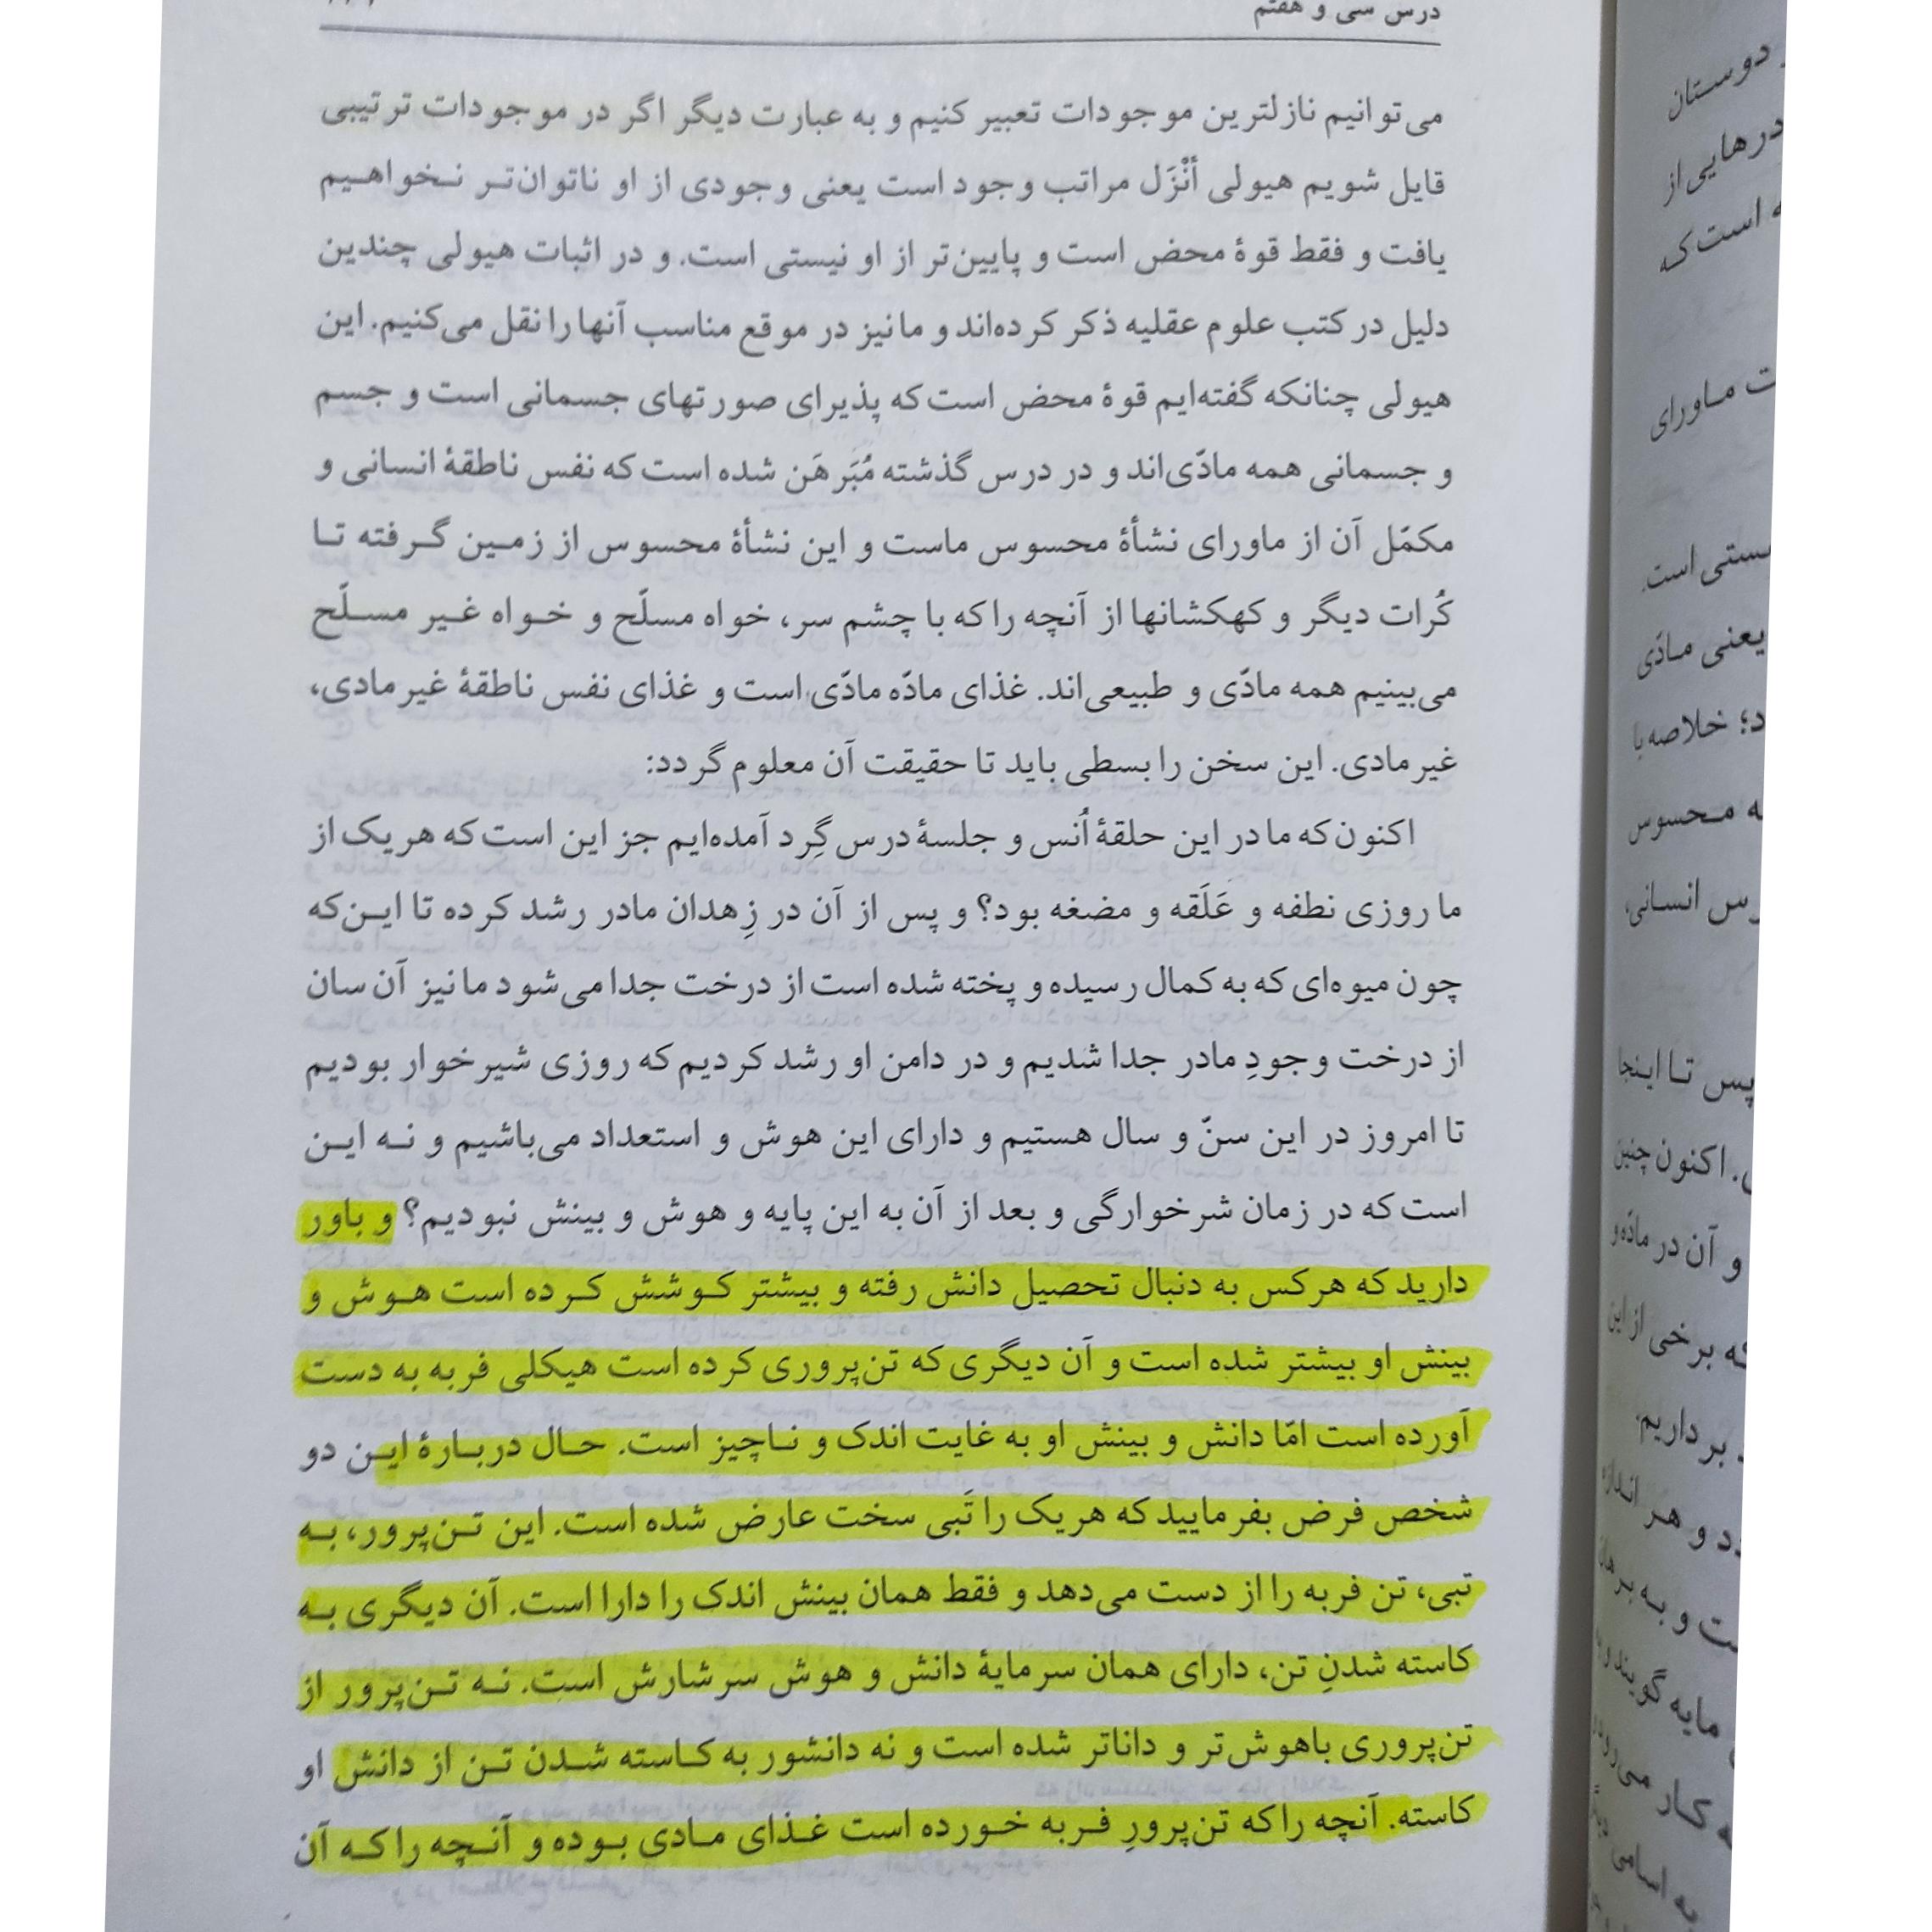 درس سی و هفتم
می‌توانیم نازلترین موجودات تعبیر کنیم و به عبارت دیگر اگر در موجودات ترتیبی
قایل شویم هیولی أنْزَل مراتب وجود است یعنی وجودی از او ناتوان‌تر نخواهیم
یافت و فقط قوهٔ محض است و پایین‌تر از او نیستی است. و در اثبات هیولی چندین
دلیل در کتب علوم عقلیه ذکر کرده‌اند و ما نیز در موقع مناسب آنها را نقل می‌کنیم. این
هیولی چنانکه گفته‌ایم قوهٔ محض است که پذیرای صورتهای جسمانی است و جسم
و جسمانی همه مادّی‌اند و در درس گذشته مُبَرهَن شده است که نفس ناطقهٔ انسانی و
مکمّل آن از ماورای نشأهٔ محسوس ماست و این نشأهٔ محسوس از زمین گرفته تا
کُرات دیگر و کهکشانها از آنچه را که با چشم سر، خواه مسلّح و خواه غیر مسلّح
می‌بینیم همه مادّی و طبیعی‌اند. غذای مادّه مادّی است و غذای نفس ناطقهٔ غیر مادی،
غیر مادی. این سخن را بسطی باید تا حقیقت آن معلوم گردد:
اکنون که ما در این حلقهٔ اُنس و جلسهٔ درس گِرد آمده‌ایم جز این است که هر یک از
ما روزی نطفه و عَلَقه و مضغه بود؟ و پس از آن در زِهدان مادر رشد کرده تا این‌که
چون میوه‌ای که به کمال رسیده و پخته شده است از درخت جدا می‌شود ما نیز آن سان
از درخت وجودِ مادر جدا شدیم و در دامن او رشد کردیم که روزی شیرخوار بودیم
تا امروز در این سنّ و سال هستیم و دارای این هوش و استعداد می‌باشیم و نه این
است که در زمان شرخوارگی و بعد از آن به این پایه و هوش و بینش نبودیم؟ و باور
دارید که هرکس به دنبال تحصیل دانش رفته و بیشتر کوشش کرده است هوش و
بینش او بیشتر شده است و آن دیگری که تن‌پروری کرده است هیکلی فربه به دست
آورده است امّا دانش و بینش او به غایت اندک و ناچیز است. حال دربارهٔ این دو
شخص فرض بفرمایید که هر یک را تَبی سخت عارض شده است. این تن‌پرور، به
تبی، تن فربه را از دست می‌دهد و فقط همان بینش اندک را دارا است. آن دیگری به
کاسته شدنِ تن، دارای همان سرمایهٔ دانش و هوش سرشارش است. نه تن‌پرور از
تن‌پروری باهوش‌تر و داناتر شده است و نه دانشور به کاسته شدن تن از دانش او
کاسته. آنچه را که تن‌پرورِ فربه خورده است غذای مادی بوده و آنچه را که آن
دوستان
درهایی از
است که
ماورای
است.
یعنی مادّی
خلاصه با
محسوس
انسانی،
پس تا اینجا
اکنون چنین
و آن در مادّه و
که برخی از این
برداریم.
و هر اندازه
و به
مایه گویند
کار
اسامی